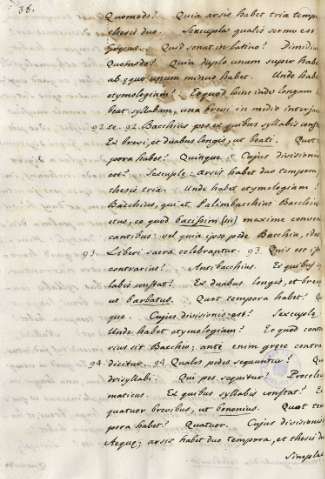 36.
Quomodo? Quia arsis habet tria temp
thesis duo. Sescupla qualis sermo est
Græcus. Quid sonat in latino? Dimidiu
Quomodo? Quia duplo unum super habe
absque unum minus habet. Unde habe
etymologiam? Eo quod hinc inde longam
beat syllabam, una brevi in medio interje
92. ta. 92. Bacchius pes ex quibus syllabis cons
Ex brevi, et duabus longis, ut beati. Quot
pora habet? Quinque. Cujus divisioni
est? Sescuplæ: arsis habet duo tempora,
thesis tria. Unde habet etymologiam?
Bacchius, qui et Palimbacchius Bacchius
ctus, eo quod maxime conven
cantibus: vel quia ipso pede Bacchia, ides
93. Liberi sacra celebrantur. 93. Quis est
contrarius? Antibacchius. Ex quibus
labis constat? Ex duabus longis, et brev
ut barbatus. Quot tempora habet?
que. Cujus divisionis est? Sescuplæ
Unde habet etymologiam? Eo quod contra
rius sit Bacchio; anti enim græce contra
94. dicitur. 94. Quales pedes sequuntur?
drisyllabi. Qui pes sequitur? Proceleu
maticus. Ex quibus syllabis constat? Ex
quatuor brevibus, ut bononius. Quot tem
pora habet? Quatuor. Cujus divisionis
Æquæ; arsis habet duo tempora, et thesis du
Simplex